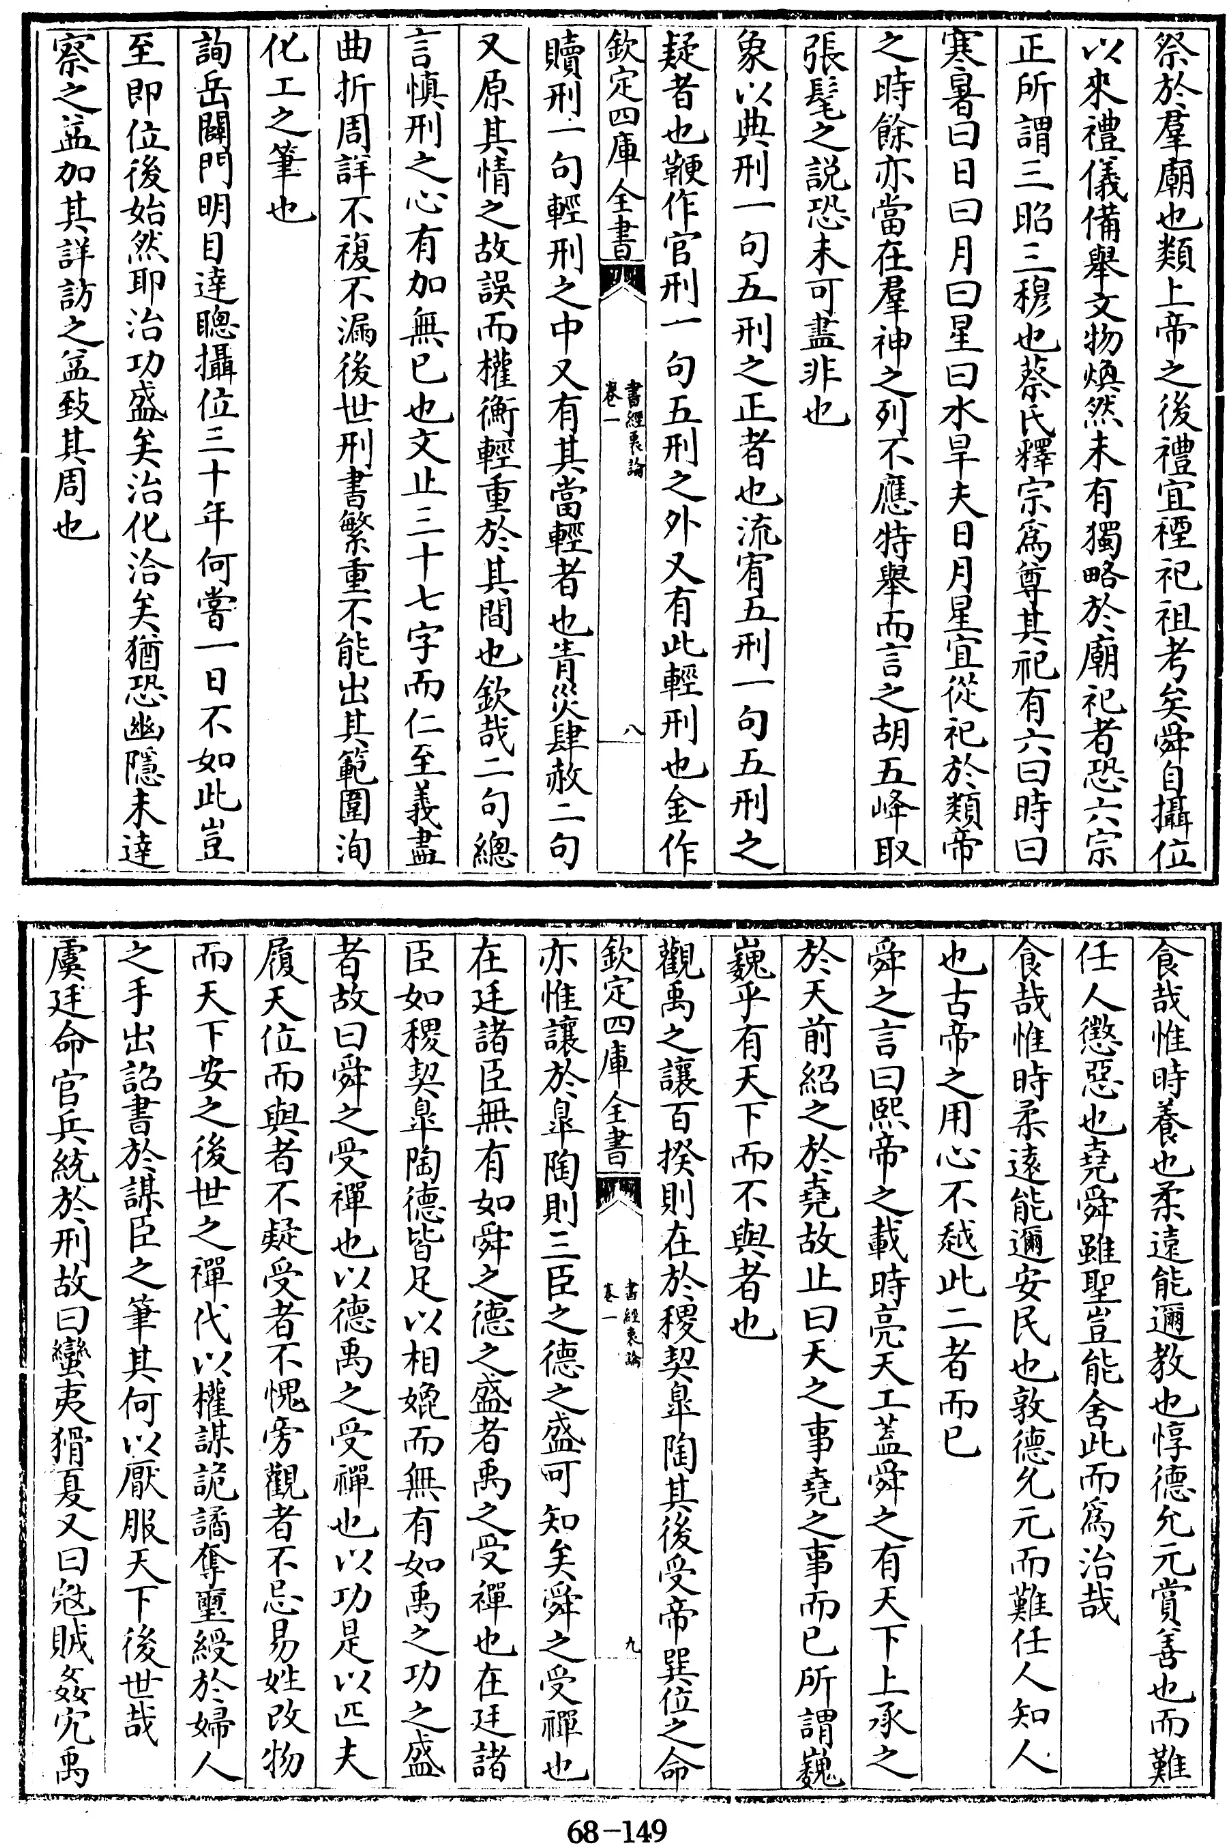 祭於羣廟也類上帝之後禮宜禋祀祖考矣舜自攝位
以來禮儀備舉文物煥然未有獨略於廟祀者恐六宗
正所謂三昭三穆也蔡氏釋宗爲尊其祀有六曰時曰
寒暑曰日曰月曰星曰水旱夫日月星宜從祀於類帝
之時餘亦當在羣神之列不應特舉而言之胡五峰取
張髦之説恐未可盡非也
象以典刑一句五刑之正者也流宥五刑一句五刑之
疑者也鞭作官刑一句五刑之外又有此輕刑也金作
欽定四庫全書
書經衷論
卷一
八
贖刑一句輕刑之中又有其當輕者也眚災肆赦二句
又原其情之故誤而權衡輕重於其間也欽哉二句總
言慎刑之心有加無已也文止三十七字而仁至義盡
曲折周詳不複不漏後世刑書繁重不能出其範圍洵
化工之筆也
詢岳闢門明目達聰攝位三十年何嘗一日不如此豈
至即位後始然耶治功盛矣治化洽矣猶恐幽隱未達
察之益加其詳訪之益致其周也
食哉惟時養也柔遠能邇教也惇德允元賞善也而難
任人懲惡也堯舜雖聖豈能舍此而爲治哉
食哉惟時柔遠能邇安民也敦德允元而難任人知人
也古帝之用心不越此二者而已
舜之言曰熙帝之載時亮天工蓋舜之有天下上承之
於天前紹之於堯故止曰天之事堯之事而已所謂巍
巍乎有天下而不與者也
觀禹之讓百揆則在於稷契臯陶其後受帝巽位之命
欽定四庫全書
書經衷論
卷一
九
亦惟讓於臯陶則三臣之德之盛可知矣舜之受禪也
在廷諸臣無有如舜之德之盛者禹之受禪也在廷諸
臣如稷契臯陶德皆足以相媲而無有如禹之功之盛
者故曰舜之受禪也以德禹之受禪也以功是以匹夫
履天位而與者不疑受者不愧旁觀者不忌易姓改物
而天下安之後世之禪代以權謀詭譎奪璽綬於婦人
之手出詔書於謀臣之筆其何以厭服天下後世哉
虞廷命官兵統於刑故曰蠻夷猾夏又曰寇賊姦宄禹
68-149